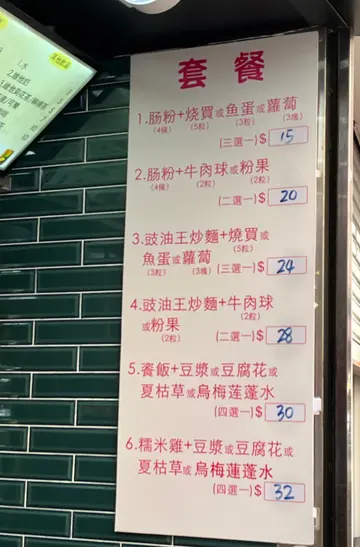 套餐
1.肠粉+燒買或魚蛋或蘿蔔
(4條) (5粒) (3粒) (3塊)
(三選一)$ 15
2.肠粉+牛肉球或粉果
(4條) (2粒) (2粒)
(二選一)$ 20
3.豉油王炒麵+燒買或
(5粒)
魚蛋或蘿蔔(三選一)$ 24
(3粒) (3塊)
4.豉油王炒麵+牛肉球
(2粒)
或粉果 (二選一)$ 28
(2粒)
5.餈飯+豆漿或豆腐花或
夏枯草或烏梅莲蓬水
(四選一)$ 30
6.糯米雞+豆漿或豆腐花或
夏枯草或烏梅蓮蓬水
(四選一)$ 32